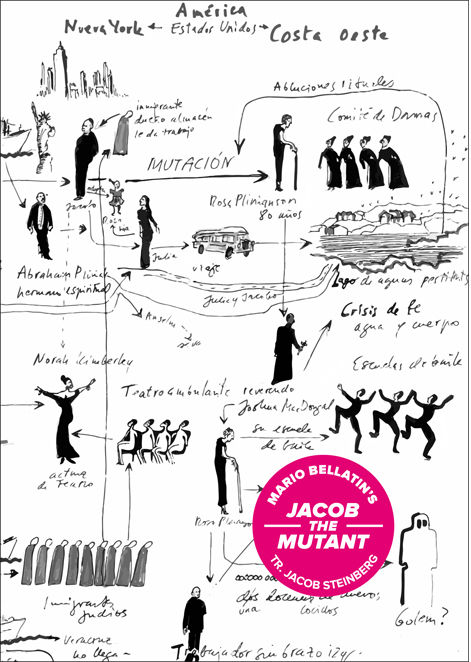 América
Nueva York ← Estados Unidos → Costa oeste
Abluciones rituales
inmigrante
dueño almacén
le da trabajo
Comité de Damas
MUTACIÓN
Jacob
Rosa
Rose Plinianson
80 años
Julia
viaje
Abraham
hermano espiritual
Julia y Jacobo
Lago de aguas
Anselm
Crisis de fe
agua y cuerpo
Norah Kimberley
Escuelas de baile
Teatro ambulante
reverendo
Joshua MacDougal
su escuela
de baile
actriz
de Teatro
Rose
MARIO BELLATIN'S
JACOB
THE
MUTANT
TR. JACOB STEINBERG
dos docenas de huevos
una cocidos
Golem?
Inmigrantes
judíos
Veracruz
no llega
Trabajador sin brazo izq.